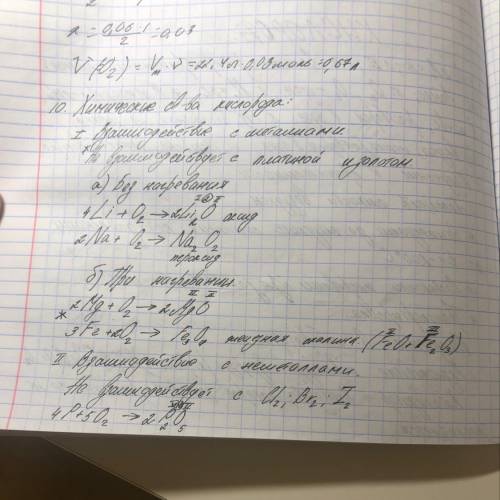 n = 0,06·1/2 = 0,03
V(O₂) = Vₘ·ν = 22,4л·0,03моль = 0,67л
10. Химические св-ва кислорода:
I Взаимодействие с металлами
*Не взаимодействует с платиной и золотом
а) без нагревания
I II
4Li + O₂ → 2Li₂O оксид
2Na + O₂ → Na₂O₂
пероксид
б) При нагревании
II II
2Mg + O₂ → 2MgO
* 3Fe + 2O₂ → Fe₃O₄ железная окалина (FeO + Fe₂O₃)
II Взаимодействие с неметаллами.
Не взаимодействует с Cl₂; Br₂; I₂
4P + 5O₂ → 2P₂O₅